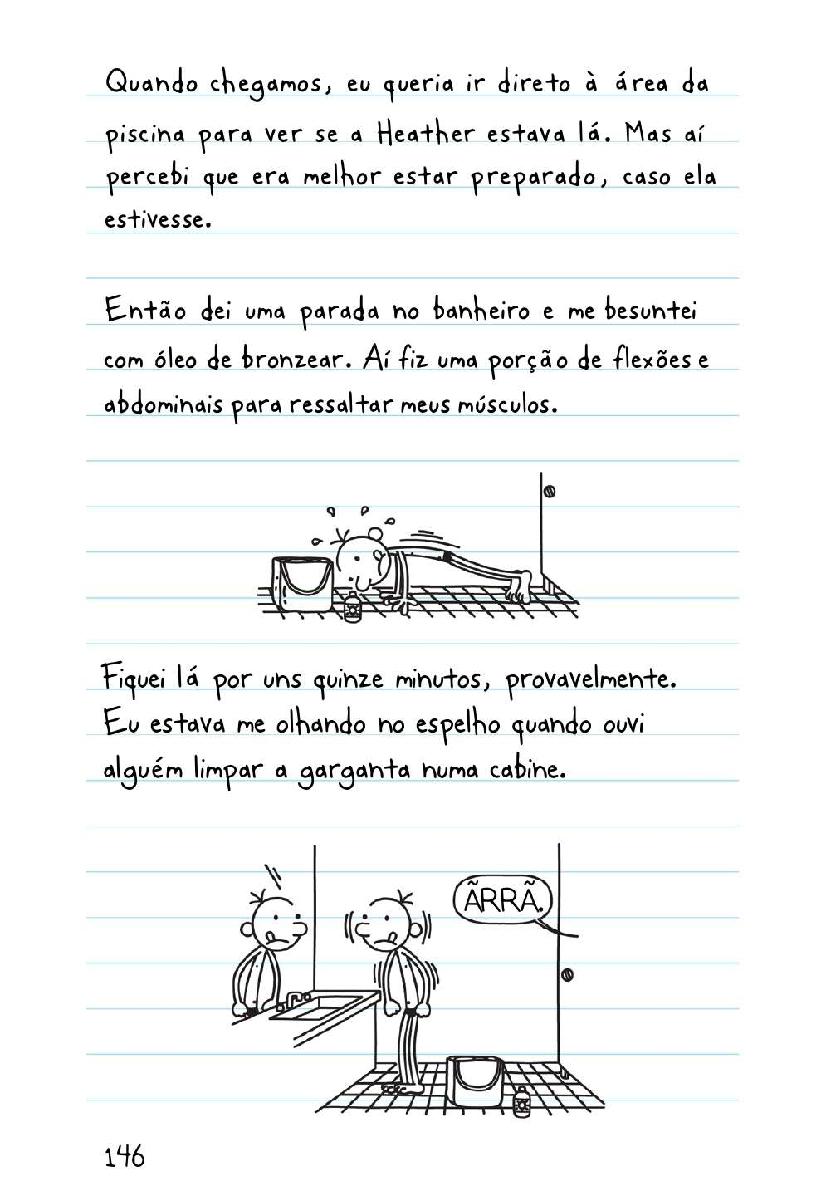 Quando chegamos, eu queria ir direto à área da
piscina para ver se a Heather estava lá. Mas aí
percebi que era melhor estar preparado, caso ela
estivesse.
Então dei uma parada no banheiro e me besuntei
com óleo de bronzear. Aí fiz uma porção de flexões e
abdominais para ressaltar meus músculos.
Fiquei lá por uns quinze minutos, provavelmente.
Eu estava me olhando no espelho quando ouvi
alguém limpar a garganta numa cabine.
ÃRRÃ.
146